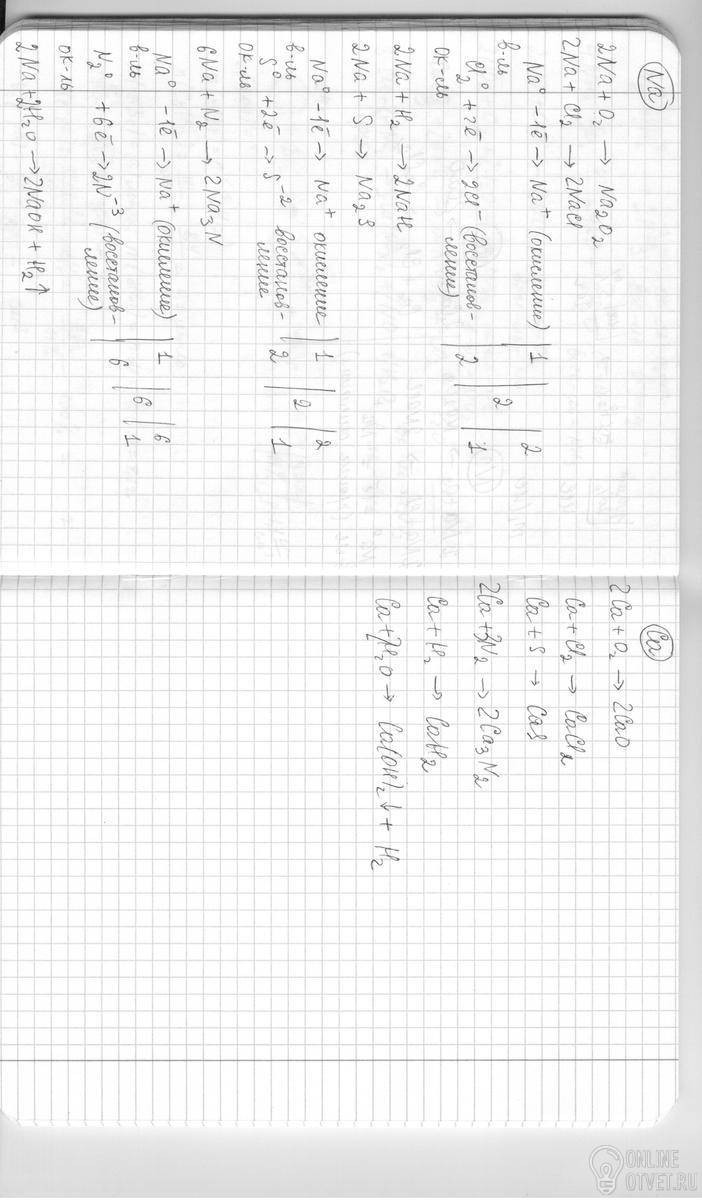 Na
2Na + O₂ → Na₂O₂
2Na + Cl₂ → 2NaCl
Na⁰ - 1ē → Na⁺ (окисление) | 1 | 2 | 2
в-ль
Cl₂⁰ + 2ē → 2Cl⁻ (восстанов- | 2 | | 1
ление)
ок-ль
2Na + H₂ → 2NaH
2Na + S → Na₂S
Na⁰ - 1ē → Na⁺ окисление | 1 | 2 | 2
в-ль
S⁰ + 2ē → S⁻² восстанов- | 2 | | 1
ление
ок-ль
6Na + N₂ → 2Na₃N
Na⁰ - 1ē → Na⁺ (окисление) | 1 | 6 | 6
в-ль
N₂⁰ + 6ē → 2N⁻³ (восстанов- | 6 | | 1
ление)
ок-ль
2Na + 2H₂O → 2NaOH + H₂↑
Ca
2Ca + O₂ → 2CaO
Ca + Cl₂ → CaCl₂
Ca + S → CaS
2Ca + 3N₂ → 2Ca₃N₂
Ca + H₂ → CaH₂
Ca + 2H₂O → Ca(OH)₂↓ + H₂
ONLINE
OTVET.RU